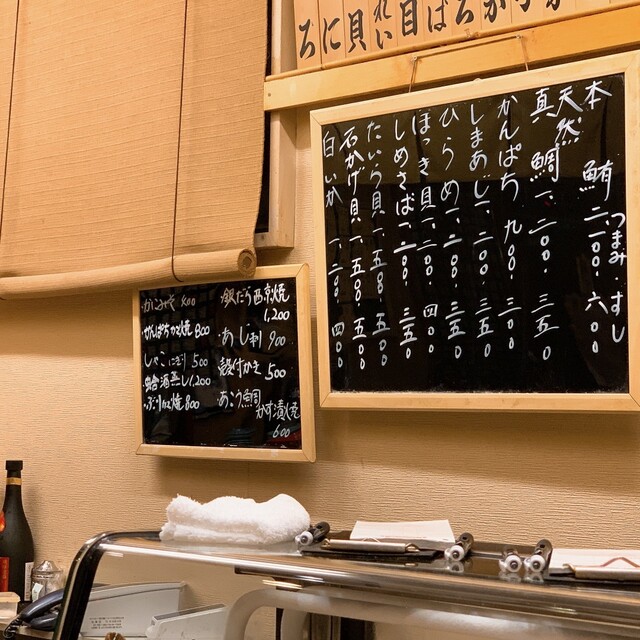 つまみ すし
本鮪 二一〇〇. 六〇〇
天然
真鯛 一、二〇〇. 三五〇
かんぱち 九〇〇. 三〇〇
しまあじ 一、二〇〇. 三五〇
ひらめ 一、二〇〇. 三五〇
ほっき貝 一、二〇〇. 四〇〇
しめさば 一、二〇〇. 三五〇
たいら貝 一、五〇〇. 五〇〇
石かげ貝 一、五〇〇 五〇〇
白いか 一、二〇〇. 四〇〇
銀だら西京焼
1,200
あじ刺 900
殻付かき 500
あこう鯛
かす漬焼
600
かにみそ 800
かんぱちカマ焼 800
しゃこにぎり 500
蛤酒蒸し 1,200
ぶりカマ焼 800